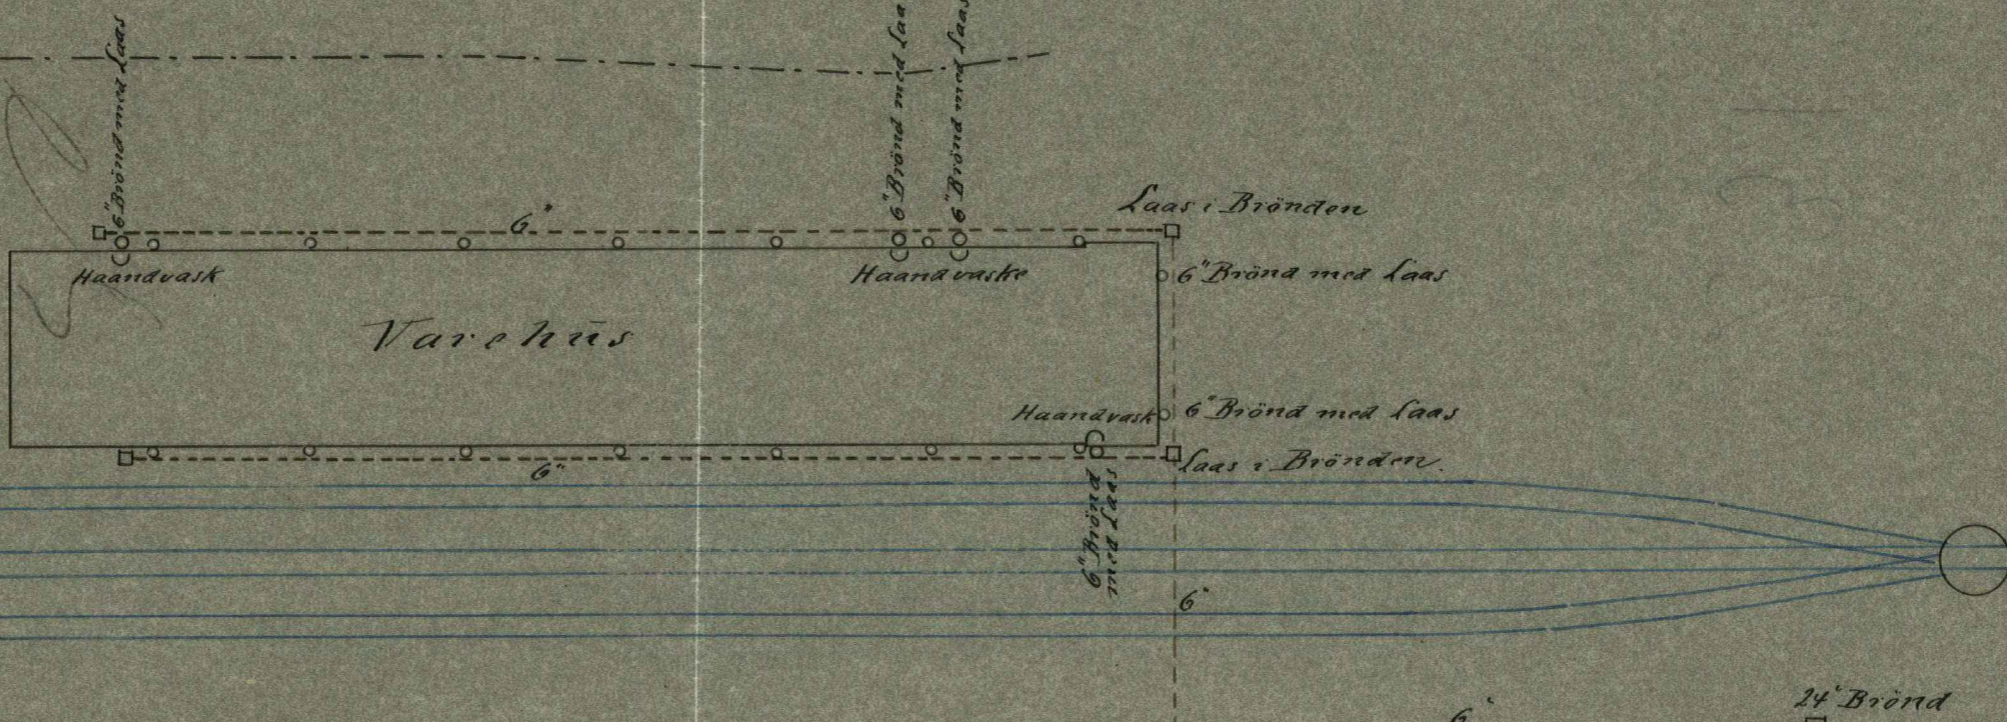 6" Brönd med Laas
6" Brönd med Laa
6" Brönd med Laas
Laas i Brönden
6"
Haandvask
Haandvaske
6" Brönd med Laas
Varehus
Haandvask
6" Brönd med Laas
6"
Laas i Brönden.
6" Brönd
med Laas
6"
24" Brönd
6"